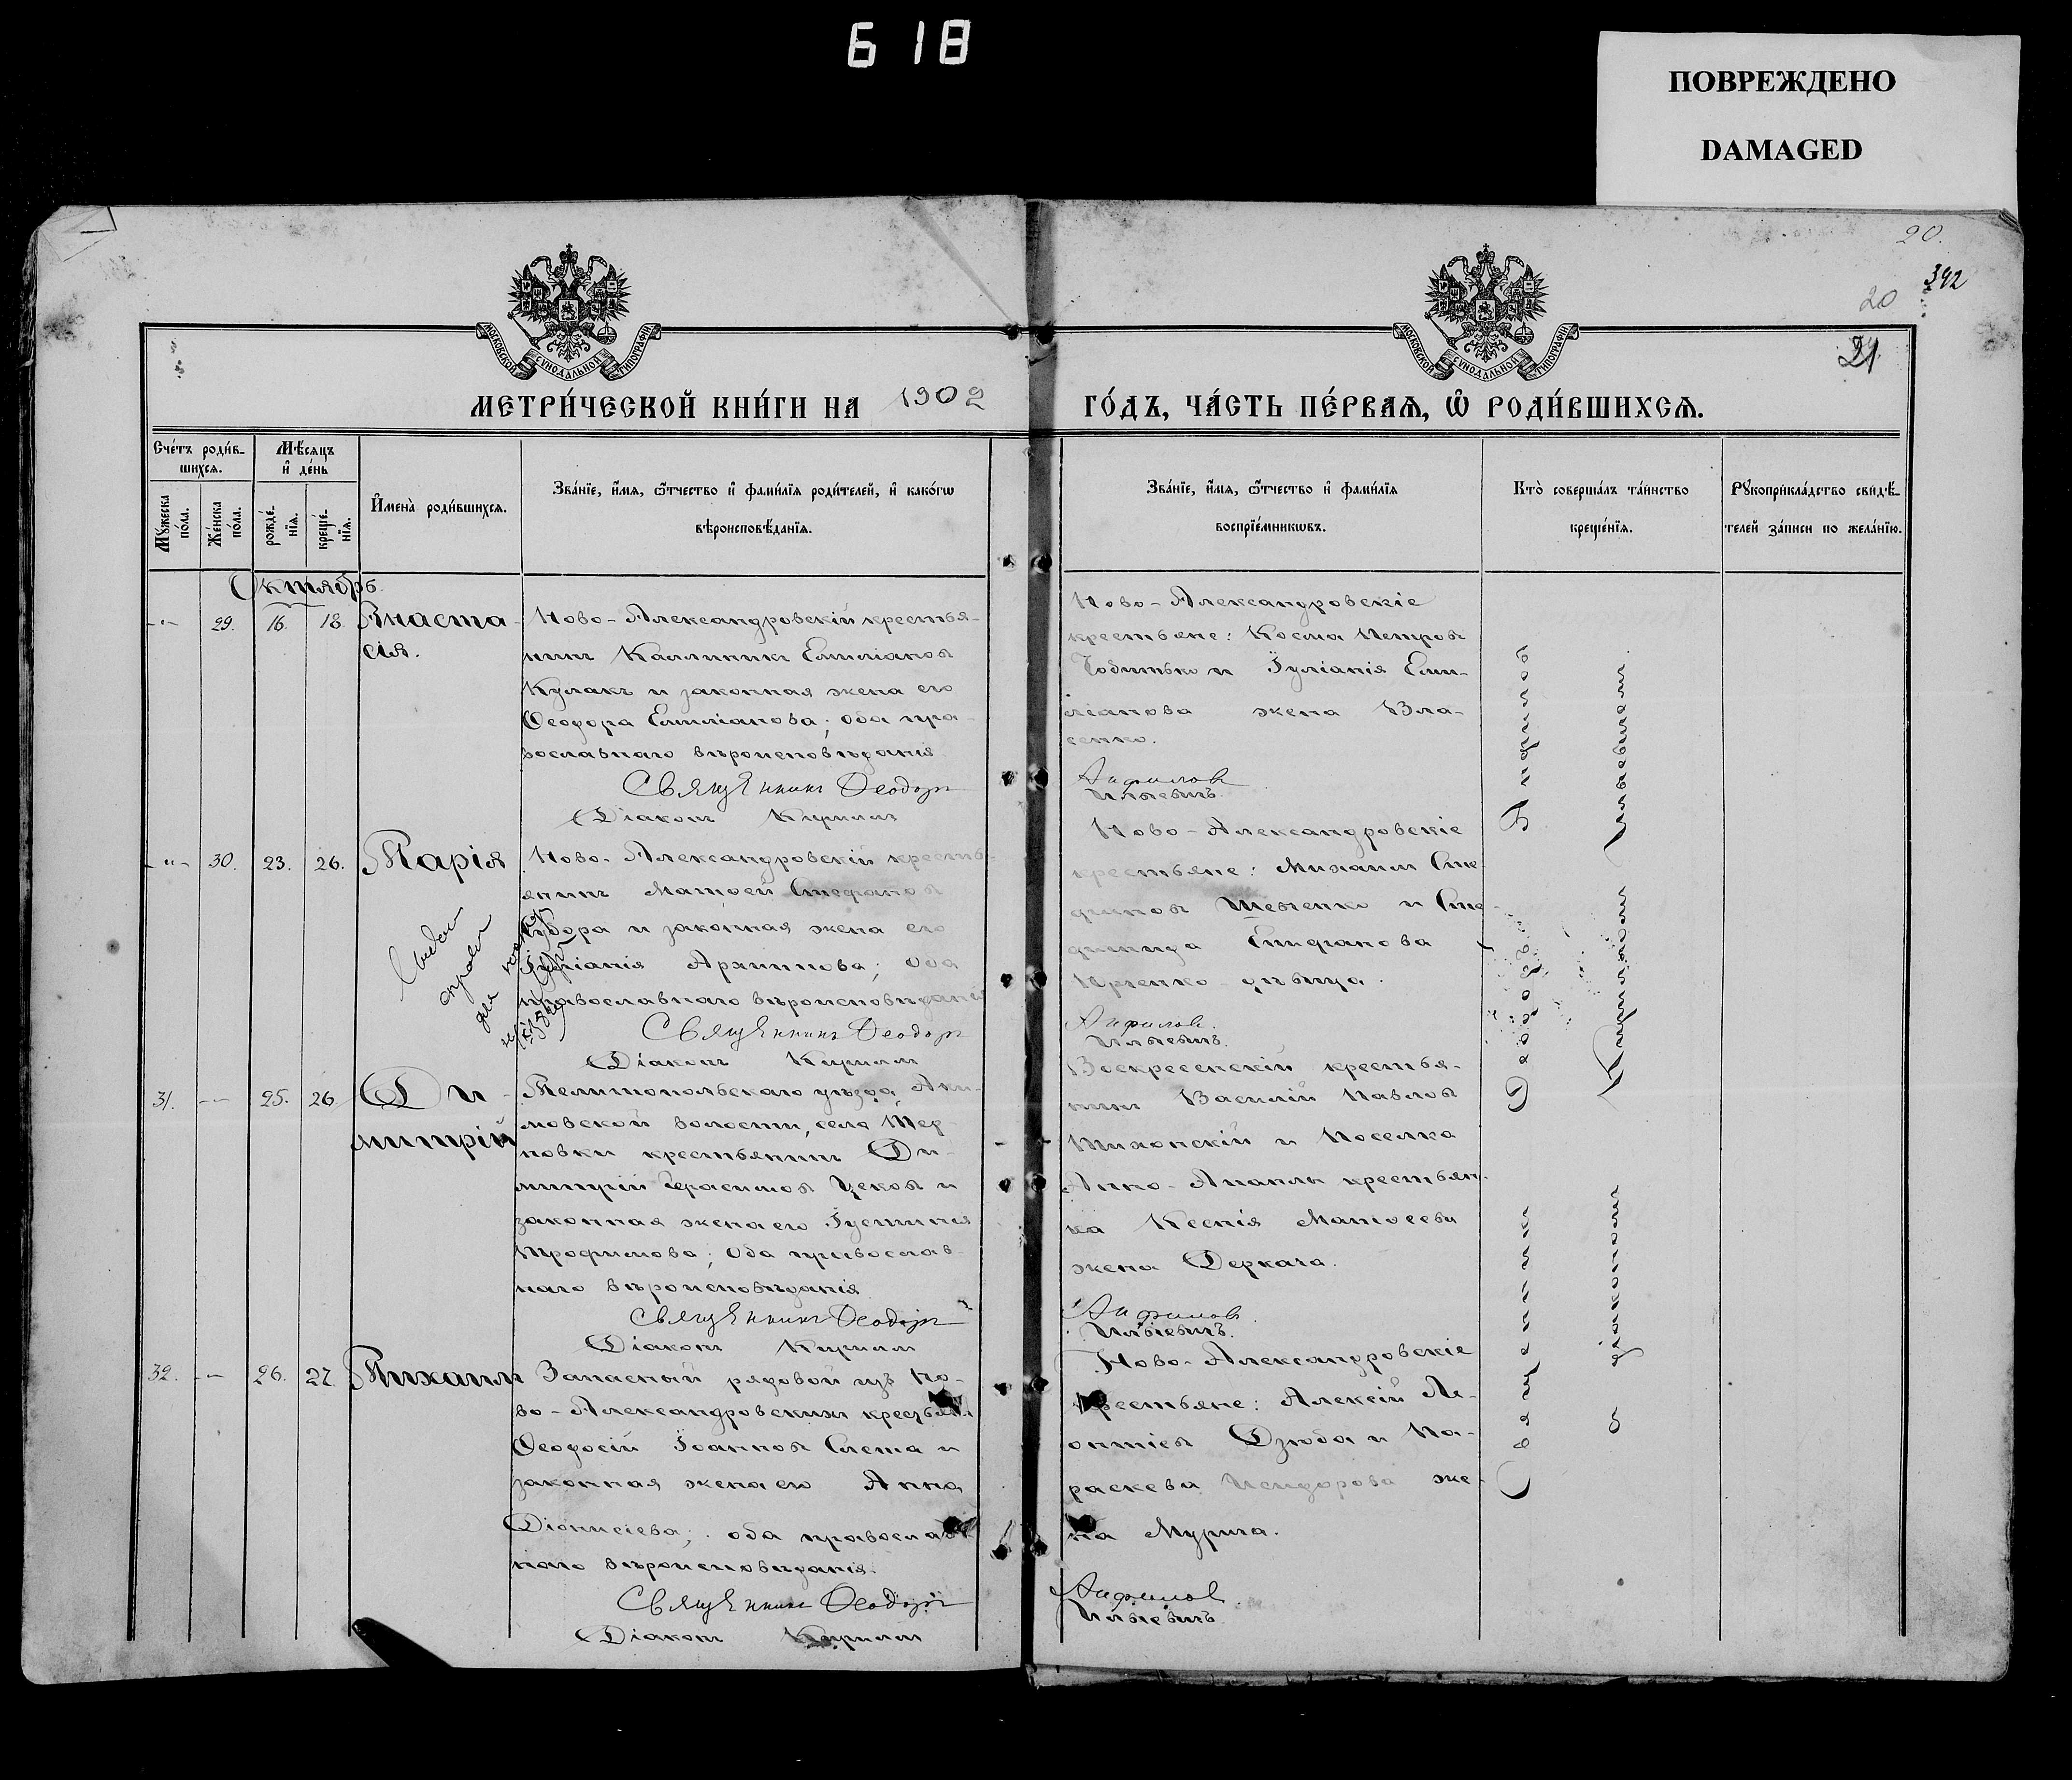 618
ПОВРЕЖДЕНО
DAMAGED
20.
392
20
21.
МОСКОВСКОЙ СѴНОДАЛЬНОЙ ТИПОГРАФІИ
МОСКОВСКОЙ СѴНОДАЛЬНОЙ ТИПОГРАФІИ
МЕТРИ́ЧЕСКОЙ КНИ́ГИ НА 1902
ГО́ДЪ, ЧА́СТЬ ПЕ́РВАѦ, Ѽ РОДИ́ВШИХСѦ.
Сче́тъ роди́в-
шихсѧ.
Мѣ́сѧцъ
и҆ де́нь
Мꙋ́жеска
по́ла.
Же́нска
по́ла.
рожде́-
нїѧ.
креще́-
нїѧ.
И҆мена̀ роди́вшихсѧ.
Зва́нїе, и҆́мѧ, ѻ҆́тчество и҆ фами́лїѧ роди́телей, и҆ како́гѡ
вѣроисповѣ́данїѧ.
Зва́нїе, и҆́мѧ, ѻ҆́тчество и҆ фами́лїѧ
воспрїе́мникѡвъ.
Кто̀ соверша́лъ та́инство
креще́нїѧ.
Рꙋкоприкла́дство свидѣ́-
телей за́писи по жела́нїю.
Октябрь
-"- 29. 16. 18. Анаста-
сія.
Ново-Александровскій крестья-
нинъ Каллиникъ Емиліановъ
Кулакъ и законная жена его
Ѳеодора Емиліанова; оба пра-
вославнаго вѣроисповѣданія
Священникъ Ѳеодоръ
Діаконъ Кириллъ
Ново-Александровскіе
крестьяне: Косма Петровъ
и Іуліанія Еми-
ліанова жена Вла-
сенко.
Анфиловъ
Ильевичъ.
-"- 30. 23. 26. Марія
Ново-Александровскій кресть-
янинъ Матѳей Стефановъ
и законная жена его
Іуліанія Архиппова; оба
православнаго вѣроисповѣданія
Священникъ Ѳеодоръ
Діаконъ Кириллъ
Ново-Александровскіе
крестьяне: Михаилъ Сте-
фановъ Шевченко и
Епифанова
дѣвица.
Анфиловъ.
Ильевичъ.
31. -- 25. 26. Ди-
митрій
Мелитопольскаго уѣзда, Аки-
мовской волости, села Шер-
новки крестьянинъ Ди-
митрій Герасимовъ Цековъ и
законная жена его Іустинія
Трофимова; оба православ-
наго вѣроисповѣданія.
Священникъ Ѳеодоръ
Діаконъ Кириллъ
Воскресенскій крестья-
нинъ Василій Павловъ
Тихонскій и поселка
крестьян-
ка Ксенія Матѳеева
жена Деркача.
Анфиловъ.
Ильевичъ.
32. -- 26. 27. Михаилъ
Запасный рядовой изъ Но-
во-Александровскихъ крестьянъ
Ѳеодосій Іоанновъ Слета и
законная жена его Анна
Діонисіева; оба православ-
наго вѣроисповѣданія.
Священникъ Ѳеодоръ
Діаконъ Кириллъ
Ново-Александровскіе
крестьяне: Алексій Ле-
онтіевъ Дзюба и Па-
раскева Исидорова же-
на
Анфиловъ.
Ильевичъ.
Священникъ Ѳеодоръ Анфиловъ
съ діакономъ Кирилломъ Ильевичемъ.